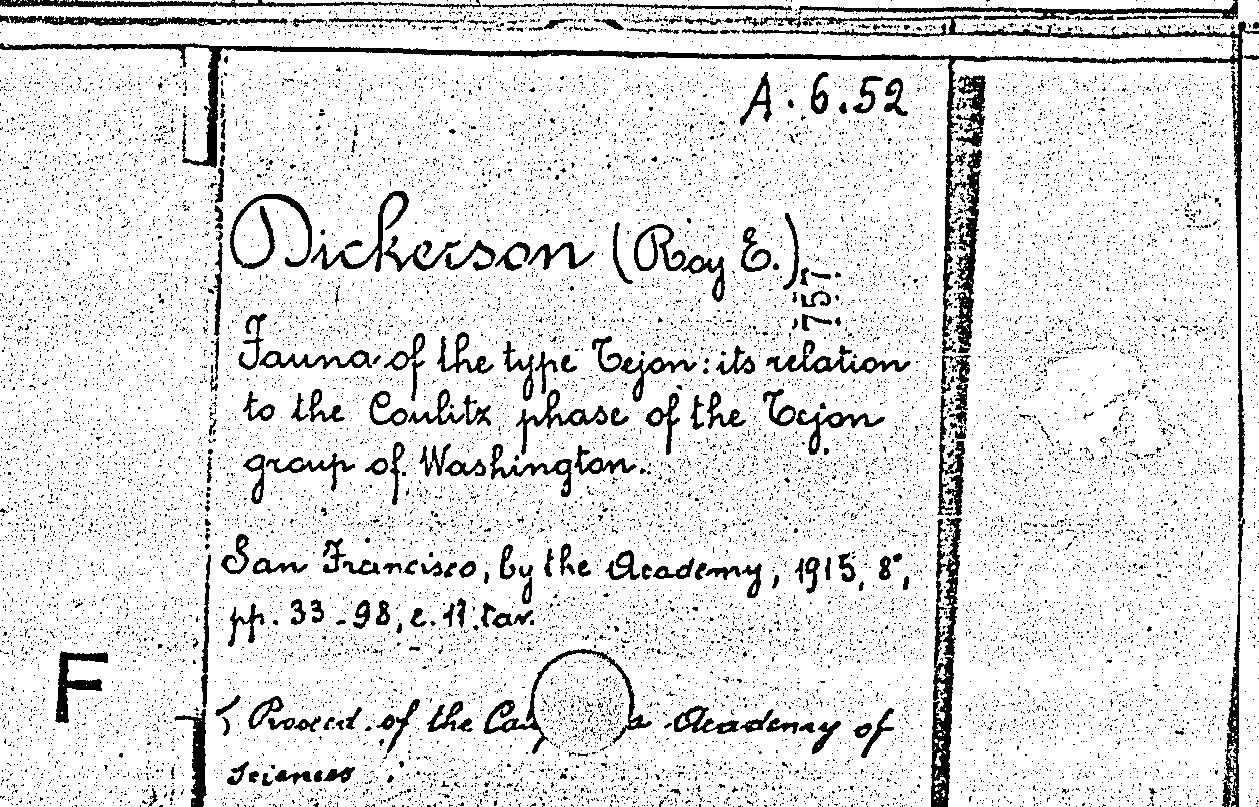 A. 6. 52
Dickerson (Roy E.)
757
Fauna of the type Tejon: its relation
to the Coulitz phase of the Tejon
group of Washington..
San Francisco, by the Academy, 1915, 8°,
pp. 33-98, c. 11. tav.
F
Proceed. of the Academy of
Sciences.